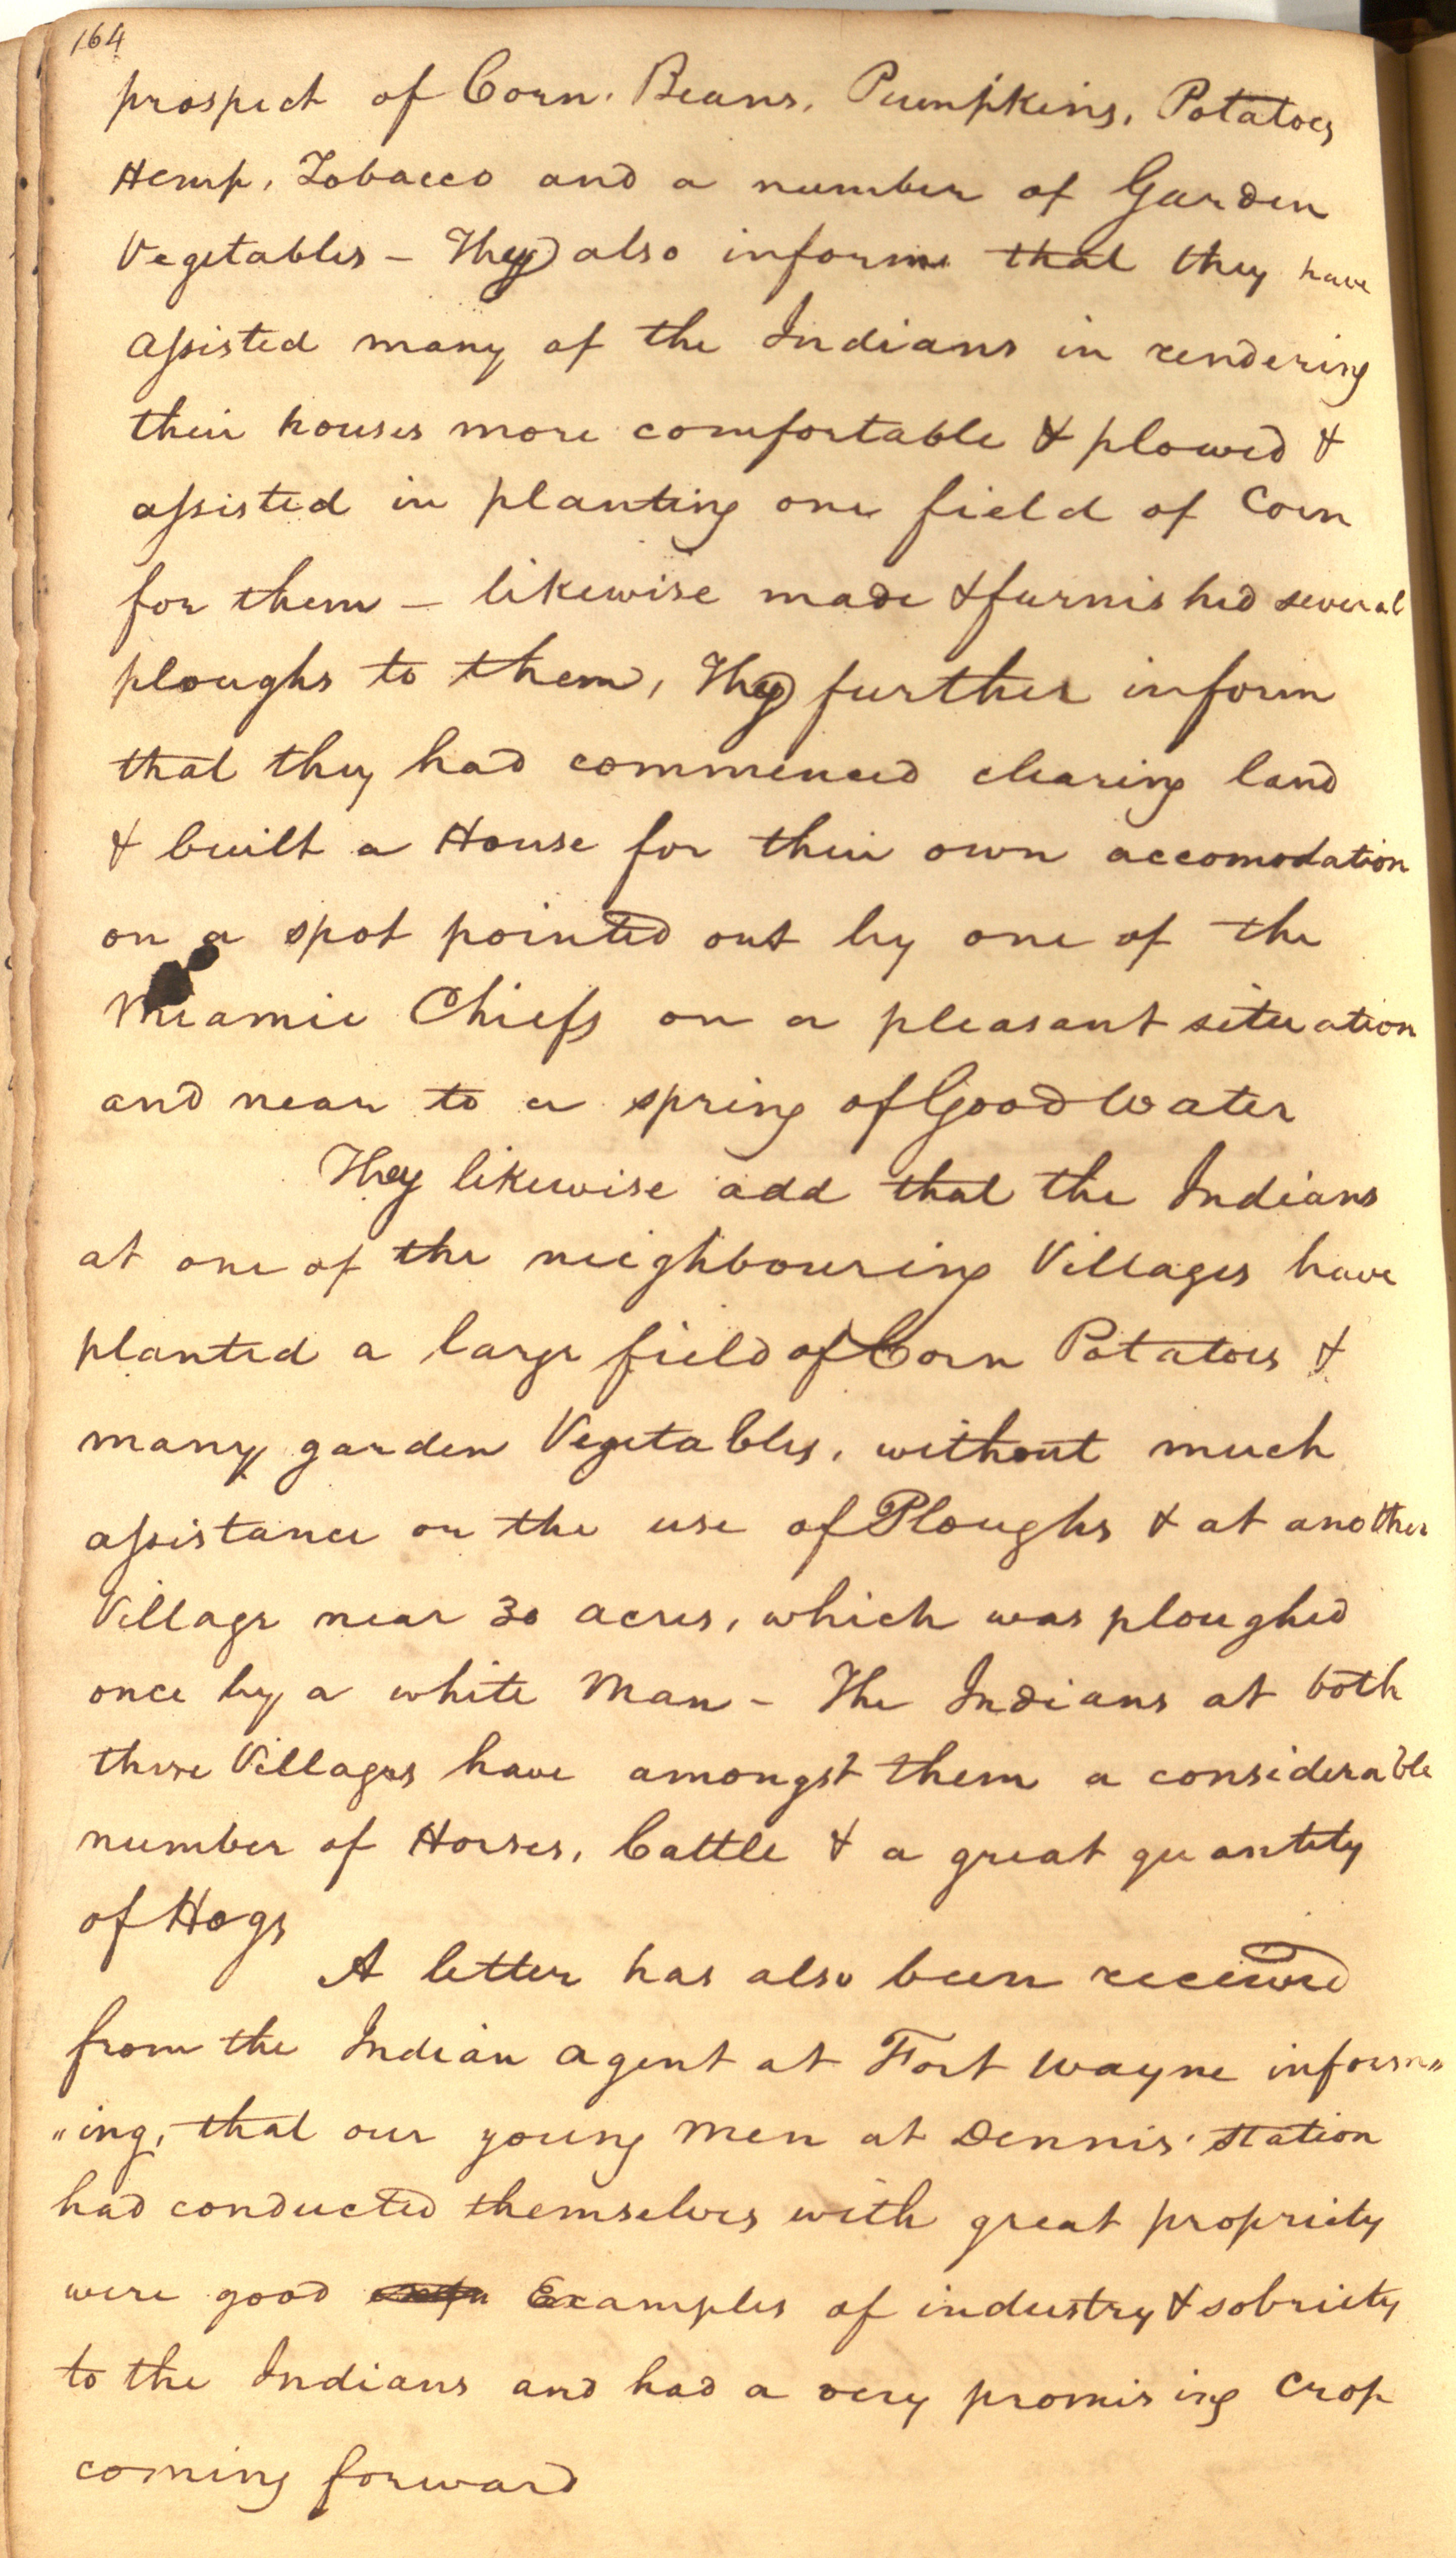 164
prospect of Corn, Beans, Pumpkins, Potatoes
Hemp, Tobacco and a number of Garden
Vegetables – They also inform that they have
assisted many of the Indians in rendering
their houses more comfortable & plowed &
assisted in planting one field of Corn
for them – likewise made & furnished several
ploughs to them, They further inform
that they had commenced clearing land
& built a House for their own accomodation
on a spot pointed out by one of the
Meamie Chiefs on a pleasant situation
and near to a spring of Good Water
They likewise add that the Indians
at one of the neighbouring Villages have
planted a large field of Corn Potatoes &
many garden Vegetables, without much
assistance or the use of Ploughs & at another
Village near 30 acres, which was ploughed
once by a white Man – The Indians at both
these Villages have amongst them a considerable
number of Horses, Cattle & a great quantity
of Hogs
A letter has also been received
from the Indian agent at Fort Wayne inform"
"ing, that our young Men at Dennis' Station
had conducted themselves with great propriety
were good Examples of industry & sobriety
to the Indians and had a very promising Crop
coming forward